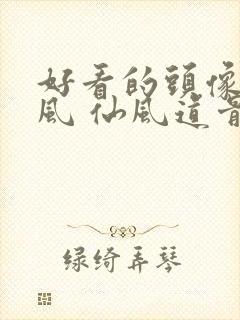 好看的頭像
風 仙風道骨
绿绮弄琴